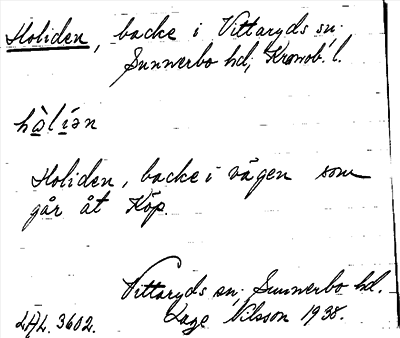 Holiden, backe i Vittaryds sn.
Sunnerbo hd, Kronob. l.
hòlíən
Holiden, backe i vägen som
går åt Köp.
Vittaryds sn, Sunnerbo hd.
LAL. 3602. Nilsson 1938.